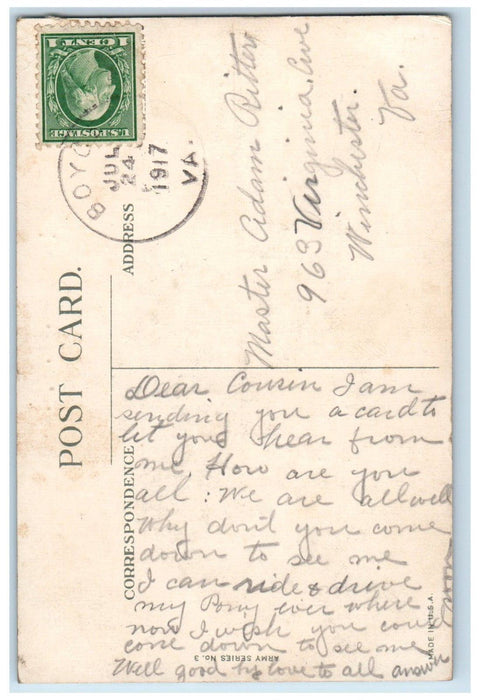 1 CENT 1
U.S. POSTAGE
BOYC
JUL
24
1917
VA.
POST CARD.
ADDRESS
CORRESPONDENCE
Master Adam Ritter
963 Virginia Ave
Winchester.
Va.
Dear Cousin I am
sending you a card to
let you hear from
me. How are you
all : We are all well
Why don't you come
down to see me
I can ride & drive
my Pony ever where
now I wish you could
come down to see me
Well good by love to all answer
soon
ARMY SERIES No. 3
MADE IN U.S.A.